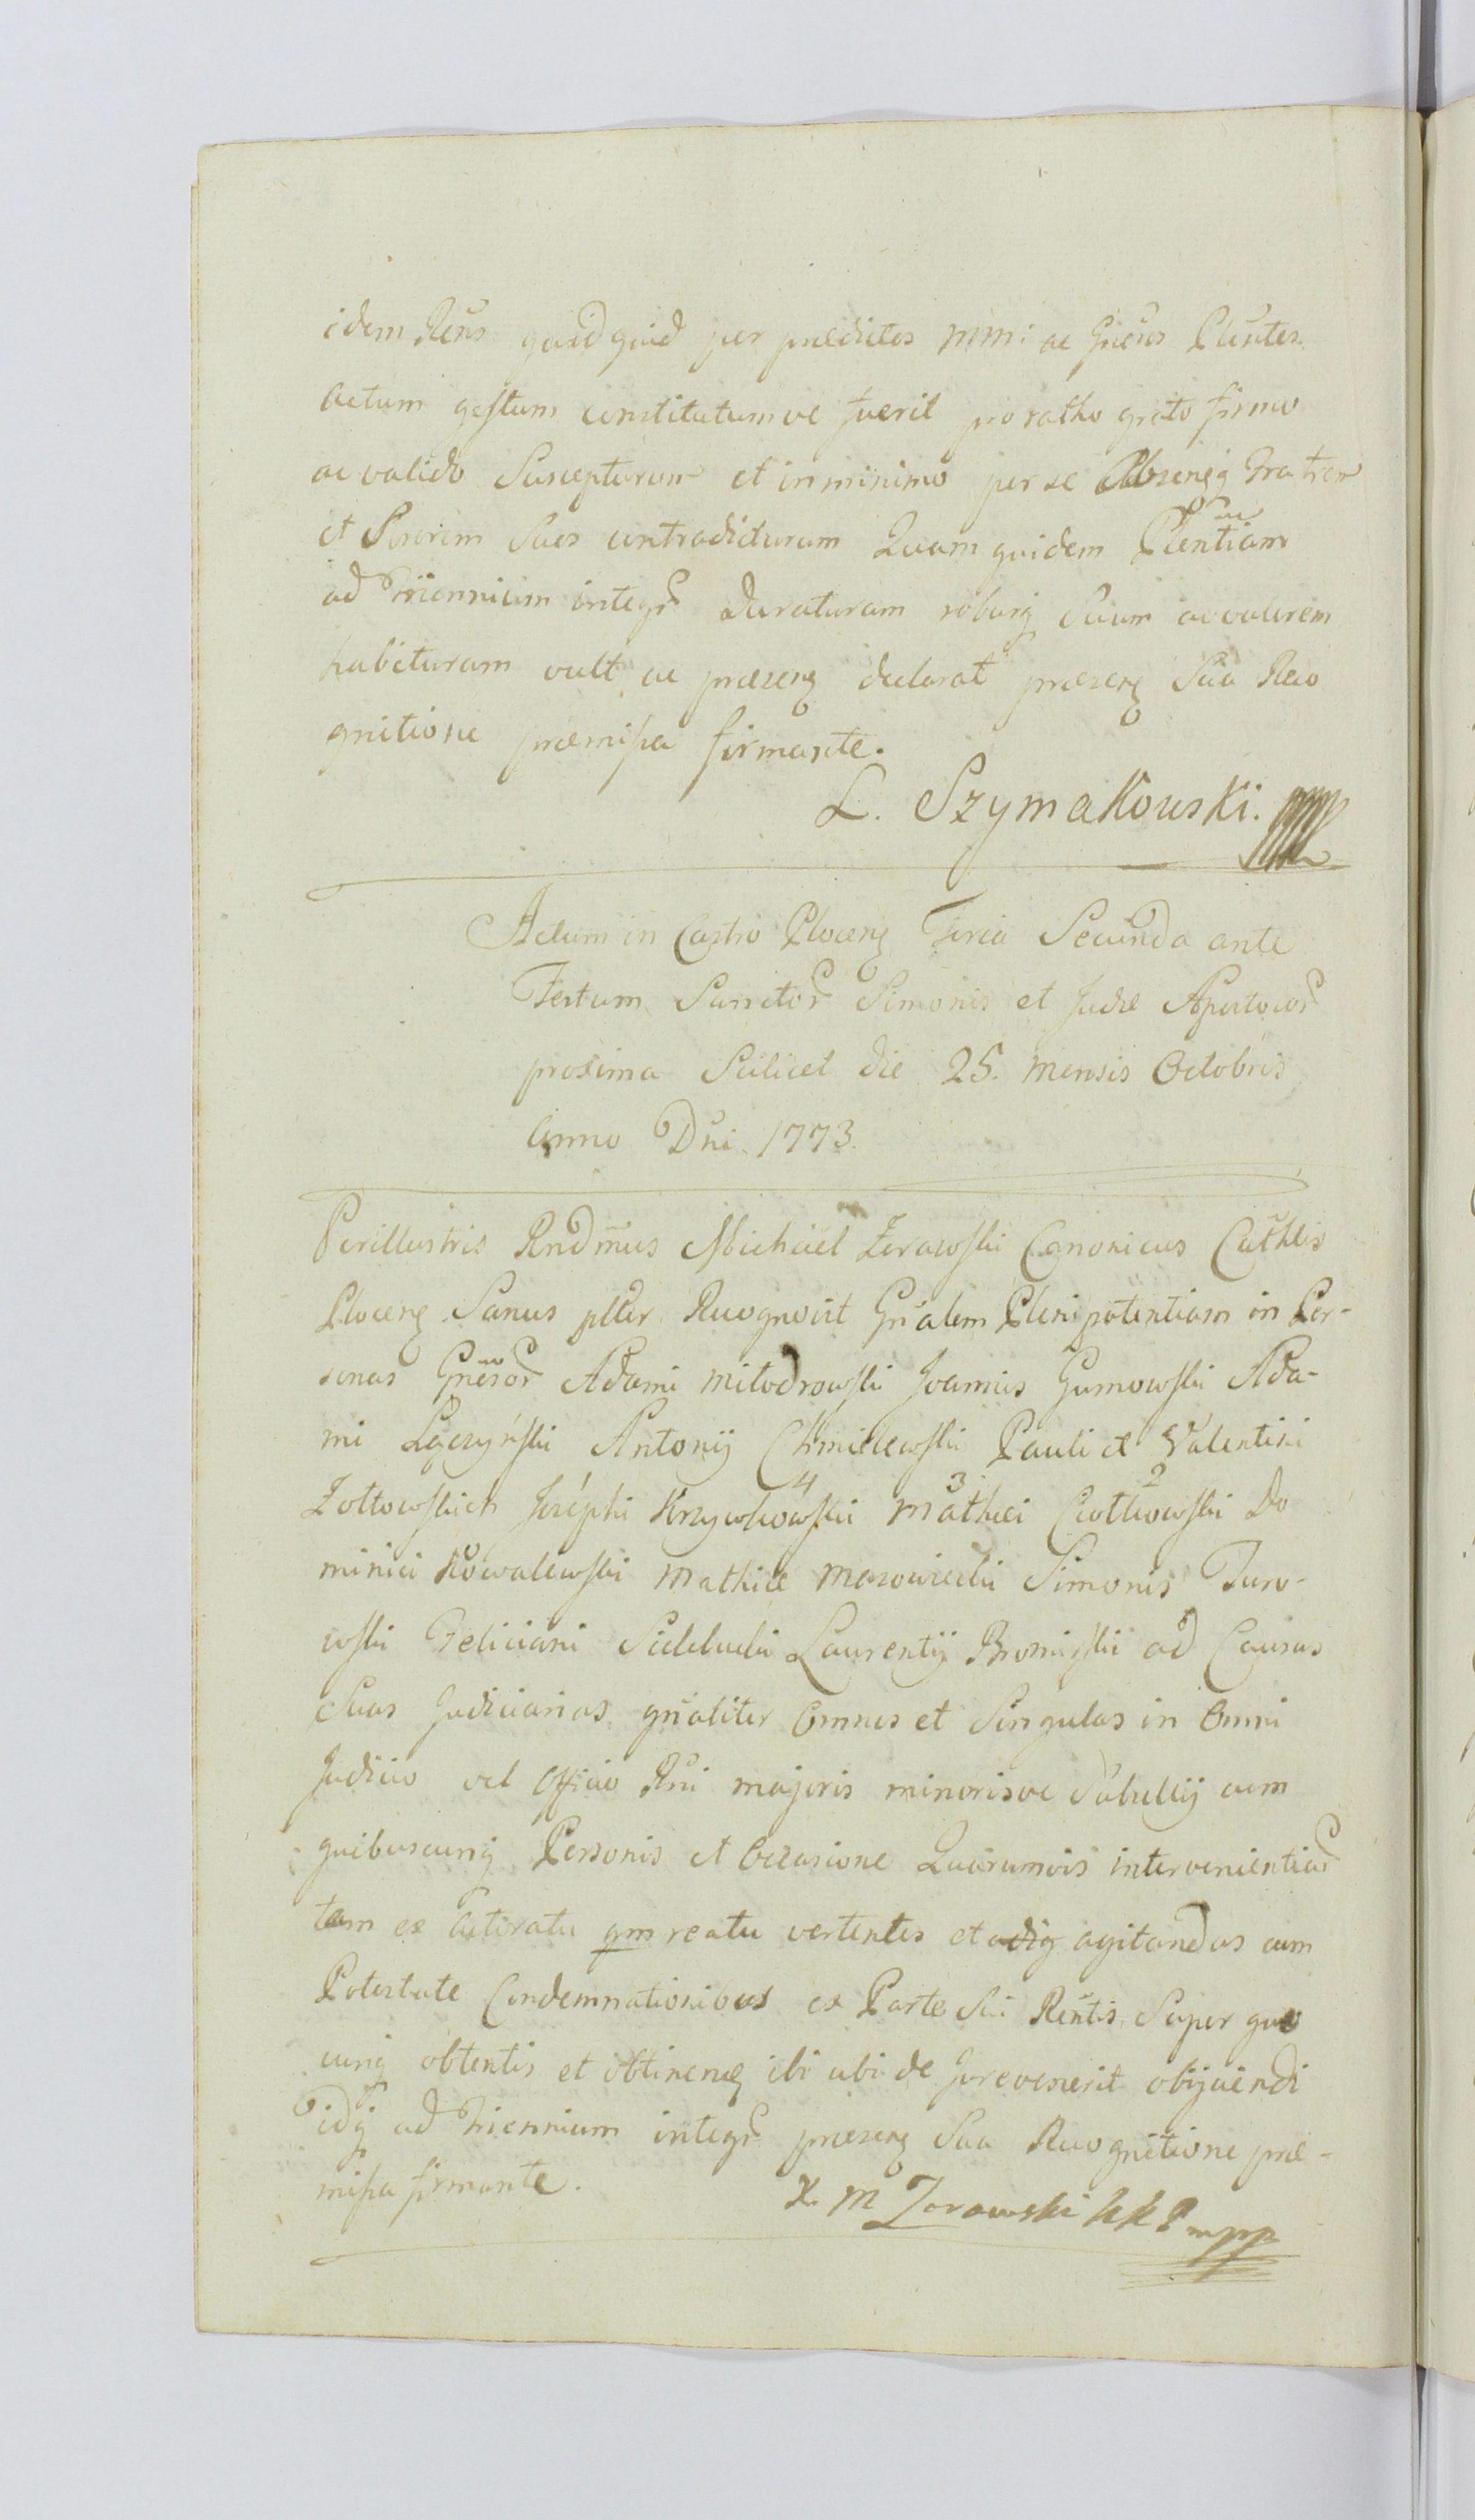 idem Rens quidquid per prædictos MM: ac Gnesos Plentes
actum gestum constitutumve fuerit pro ratho grato firmo
ac valido Suscepturum et in minimo per se Absensq Fratrem
et Sororem Suos contradicturum Quam quidem Plentiam
ad Triennium integr duraturam roburq Suum ac valorem
habituram vult ac præsens declarat præsens Sua Reco
gnitione præmissa firmante.
L. Szymakowski.
Actum in Castro Plocens Feria Secunda ante
Festum Sanctor Simonis et Judæ Apostolor
proxima Scilicet die 25. Mensis Octobris
Anno Dni 1773.
Perillustris Rndmus Michael Zerawski Canonicus Cathlis
Plocens Sanus ptter Recognovit Gnalem Plenipotentiam in Per-
sonas Gnesor Adami Miłodrowski Joannis Gumowski Ada-
mi Łączyński Antonij Chmielewski Pauli et Valentini
Żołtowskich Josephi Krzywkowski Mathei Ciołkowski Do
4 3 2
minici Kowalewski Mathiæ Mazowiecki Simonis Turo-
wski Feliciani Sieklucki Laurentij Bromirski ad Causas
Suas Judiciarias gnaliter Omnes et Singulas in Omni
Judicio vel Officio Rni majoris minorisve Subsellij cum
quibuscunq Personis et Occasione Quarumvis intervenientiar
tam ex Actoratu qm reatu vertentes et adiq agitandas cum
Potestate Condemnationibus ex Parte Sui Rentis Super quo
cunq obtentis et obtinens ibi ubi de Jure venerit obijciendi
idq ad Triennium integr præsens Sua Recognitione præ-
missa firmante.
X. M Zorawski KKP mpp